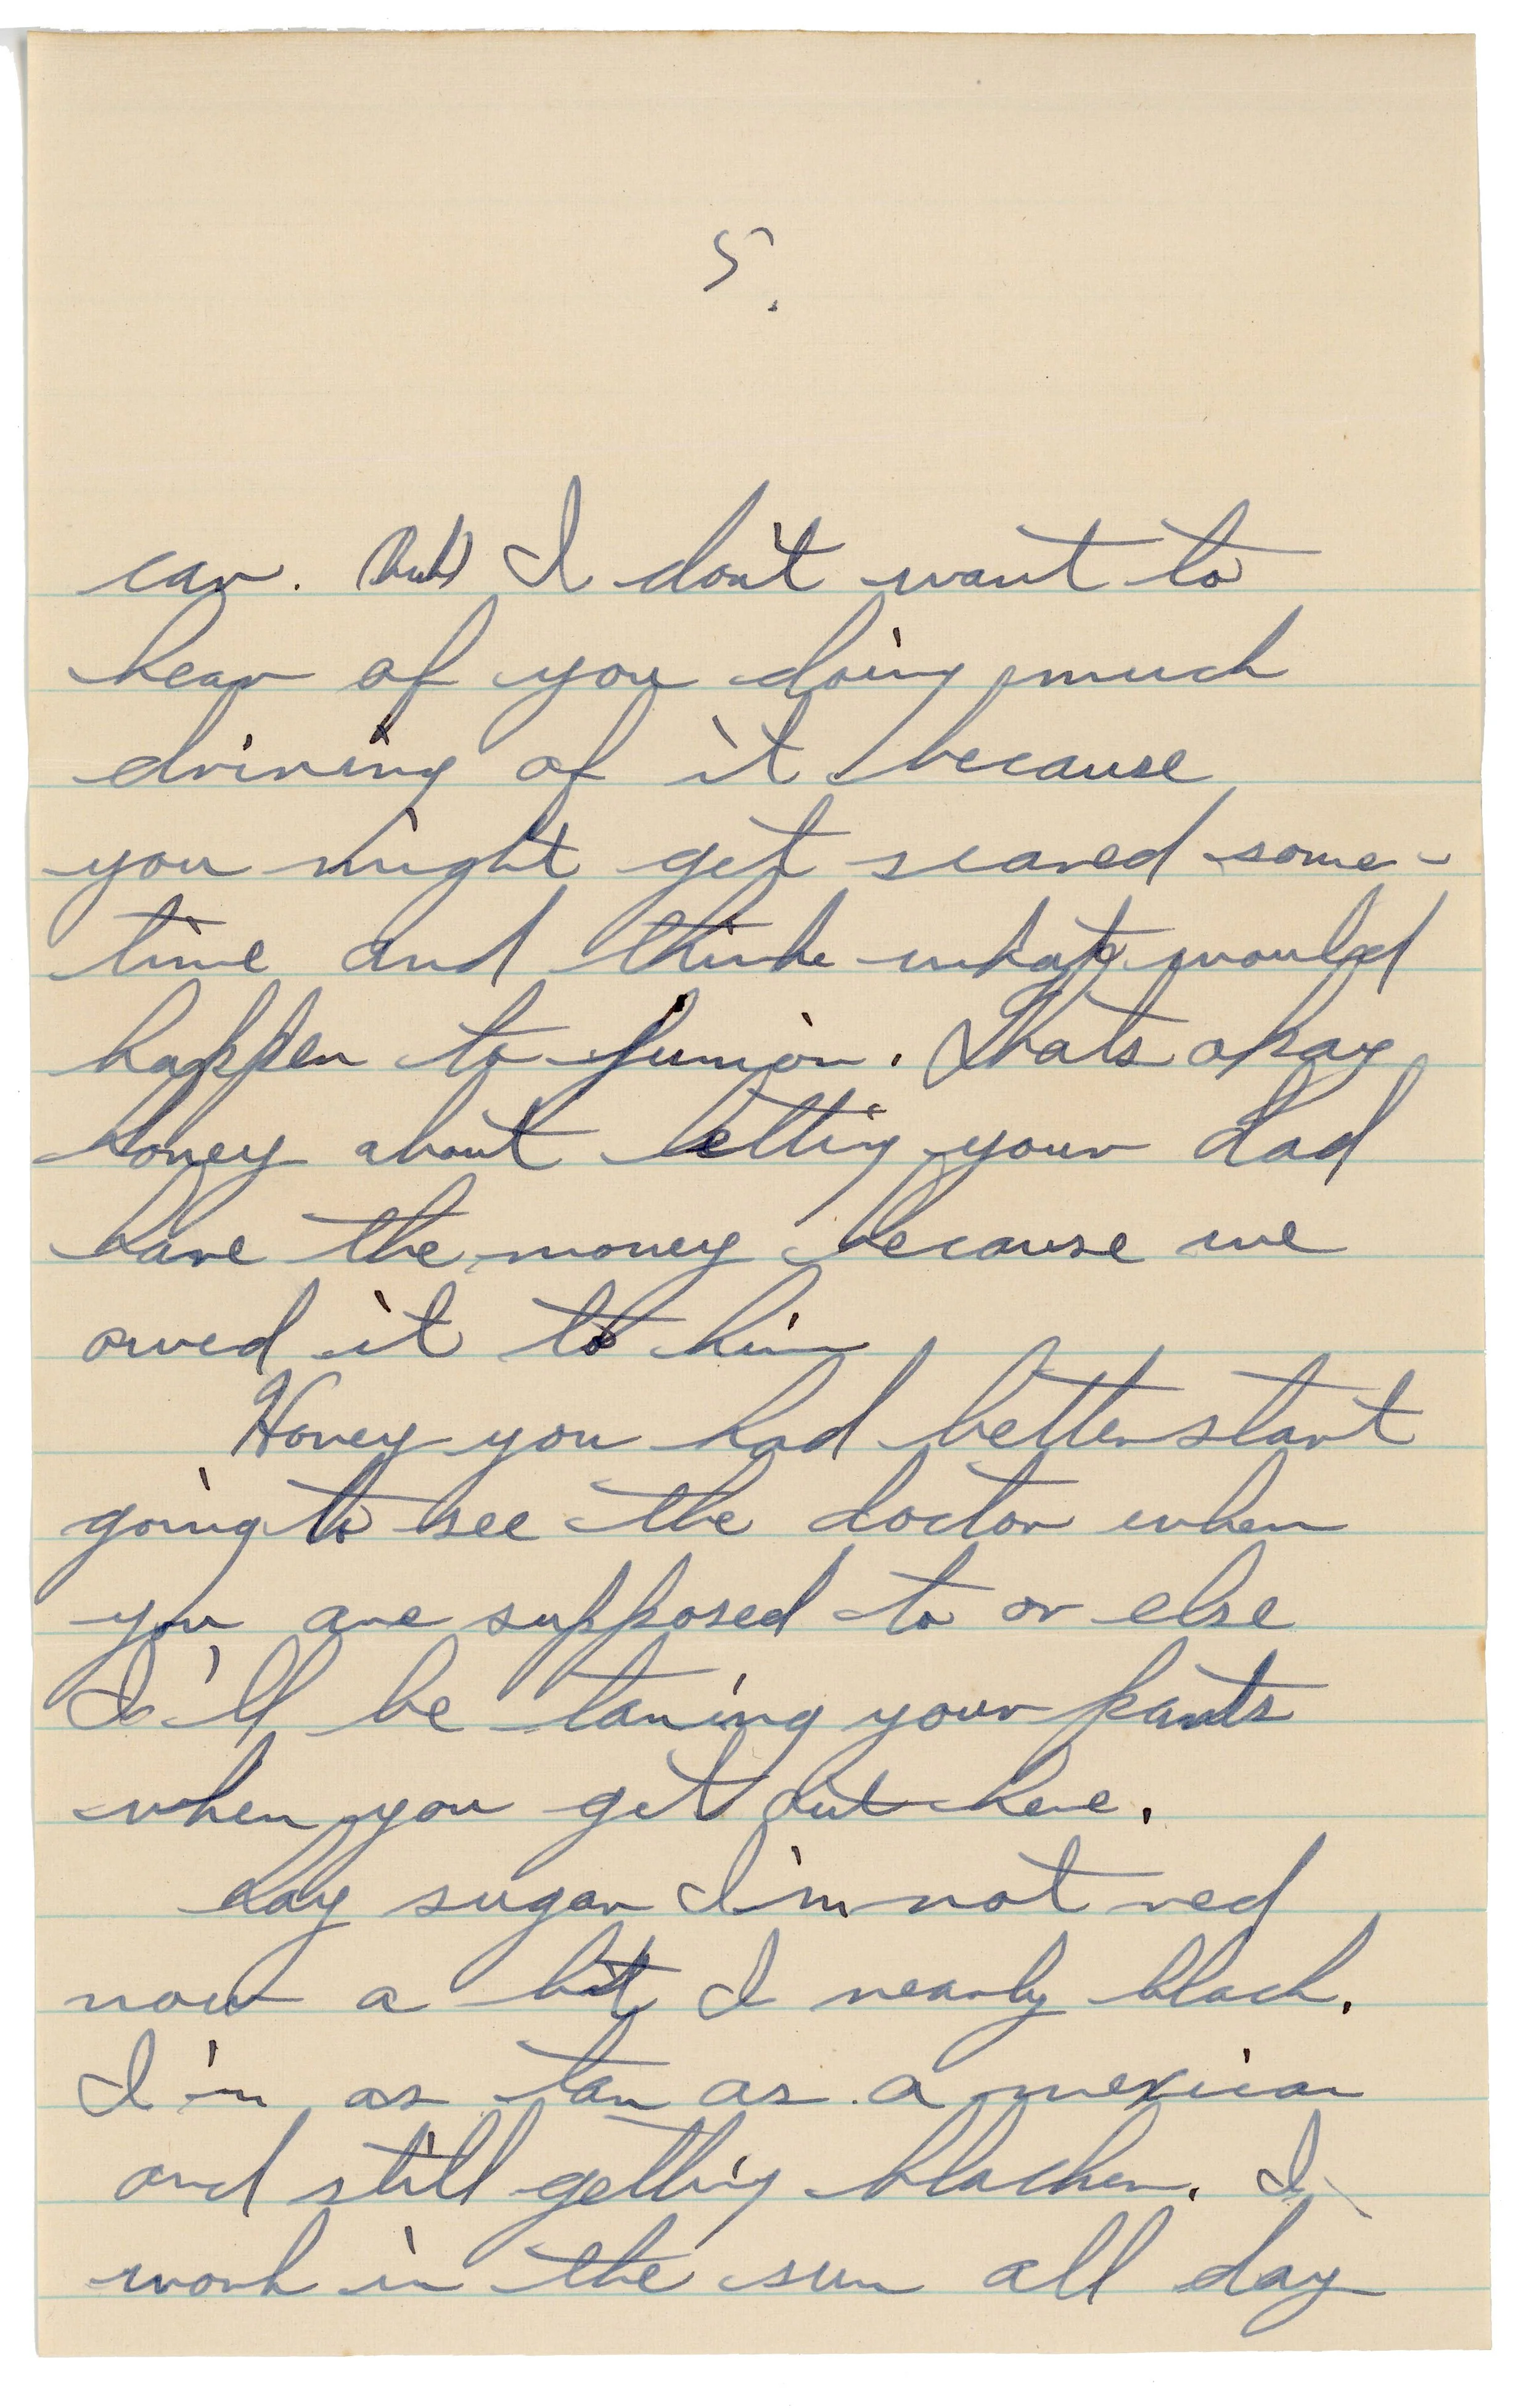 5.
car. (but) I don't want to
hear of you doing much
driving of it because
you might get scared some-
time and think what would
happen to Junior. Thats okay
honey about letting your dad
have the money because we
owed it to him
Honey you had better start
going to see the doctor when
you are supposed to or else
I'll be taning your pants
when you get out here.
say sugar I'm not red
now a bit I nearly black.
I'm as tan as a mexican
and still getting blacker. I
work in the sun all day